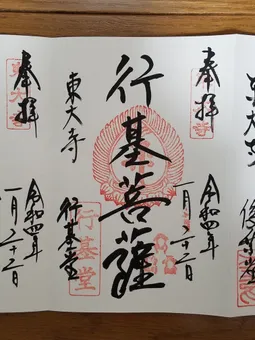 東大寺
奉拝
令和四年
一月二十三日
行基菩薩
東大寺
行基堂
行基堂
奉拝
東大寺
令和四年
一月二十三日